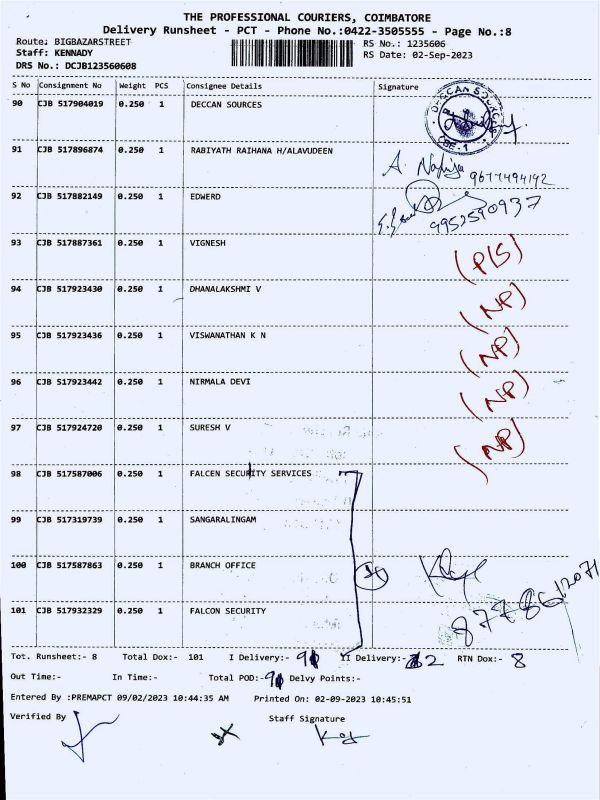 THE PROFESSIONAL COURIERS, COIMBATORE
Delivery Runsheet - PCT - Phone No.:0422-3505555 - Page No.:8
Route: BIGBAZARSTREET RS No.: 1235606
Staff: KENNADY RS Date: 02-Sep-2023
DRS No.: DCJB123560608
S No Consignment No Weight PCS Consignee Details Signature
90 CJB 517904019 0.250 1 DECCAN SOURCES
DECCAN SOURCES
CBE-1
91 CJB 517896874 0.250 1 RABIYATH RAIHANA H/ALAVUDEEN
92 CJB 517882149 0.250 1 EDWERD 9952590937
93 CJB 517887361 0.250 1 VIGNESH (P/S)
94 CJB 517923430 0.250 1 DHANALAKSHMI V (NP)
95 CJB 517923436 0.250 1 VISWANATHAN K N (NP)
96 CJB 517923442 0.250 1 NIRMALA DEVI (NP)
97 CJB 517924720 0.250 1 SURESH V (NP)
98 CJB 517587006 0.250 1 FALCEN SECURITY SERVICES
99 CJB 517319739 0.250 1 SANGARALINGAM
100 CJB 517587863 0.250 1 BRANCH OFFICE
101 CJB 517932329 0.250 1 FALCON SECURITY
Tot. Runsheet:- 8 Total Dox:- 101 I Delivery:- II Delivery:- RTN Dox:- 8
Out Time:- In Time:- Total POD:- Delvy Points:-
Entered By :PREMAPCT 09/02/2023 10:44:35 AM Printed On: 02-09-2023 10:45:51
Verified By Staff Signature